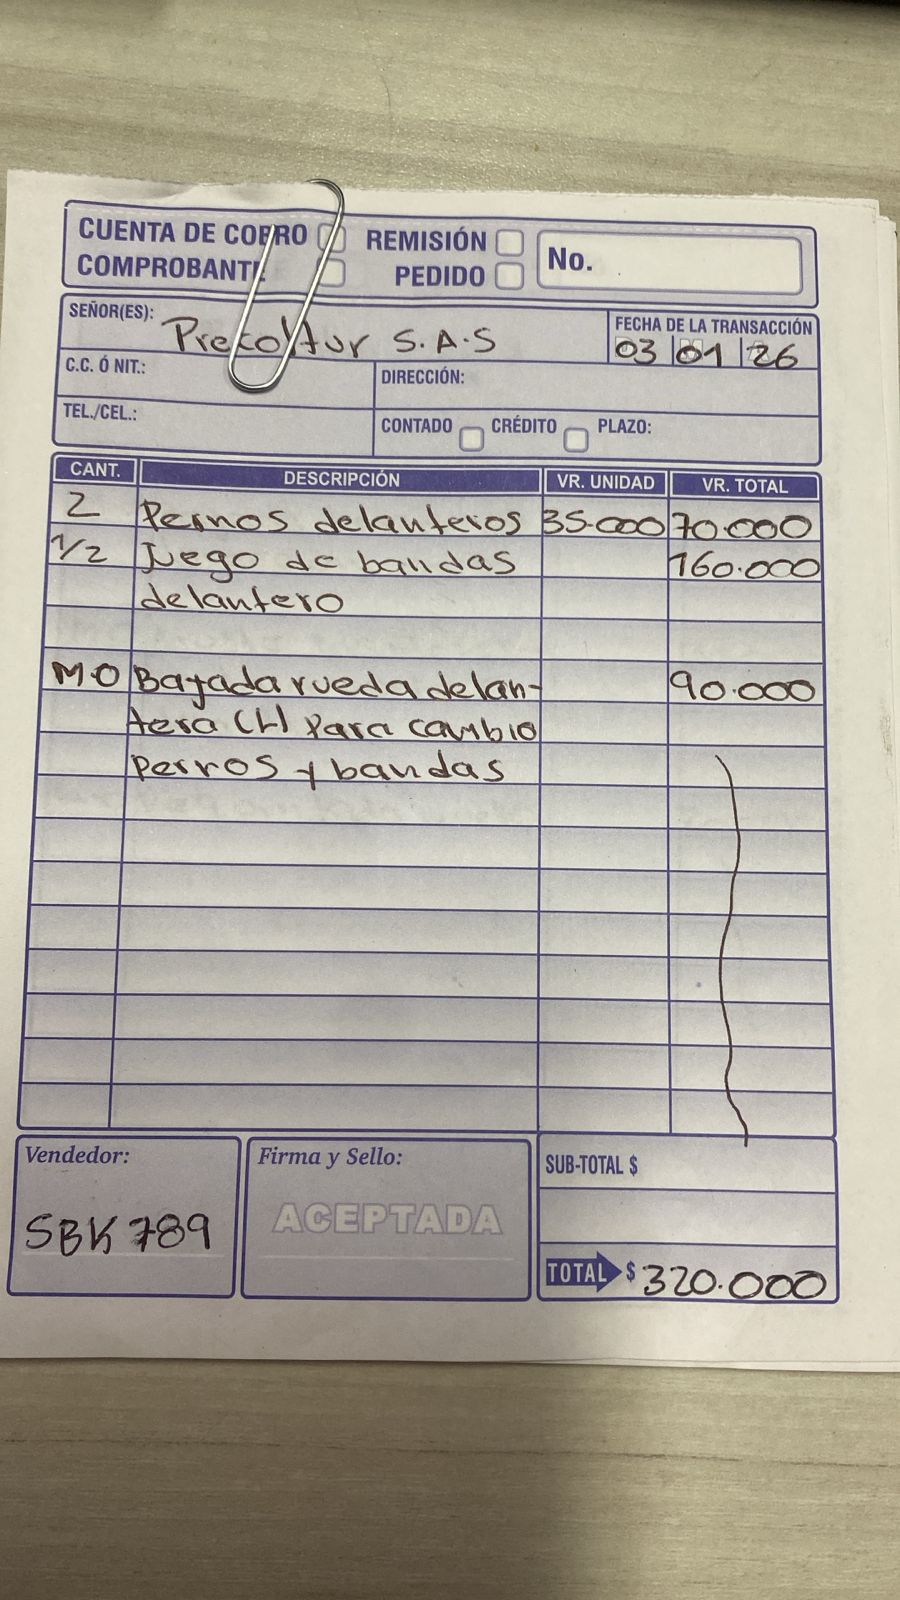 CUENTA DE COBRO REMISIÓN No.
COMPROBANTE PEDIDO
SEÑOR(ES): Precoltur S.A.S FECHA DE LA TRANSACCIÓN
03 01 26
C.C. Ó NIT.: DIRECCIÓN:
TEL./CEL.: CONTADO CRÉDITO PLAZO:
CANT. DESCRIPCIÓN VR. UNIDAD VR. TOTAL
2 Pernos delanteros 35.000 70.000
1/2 Juego de bandas 160.000
delantero
M.O Bajada rueda delan- 90.000
tera (H) para cambio
pernos y bandas
Vendedor: Firma y Sello: SUB-TOTAL $
SBK 789 ACEPTADA
TOTAL $ 320.000